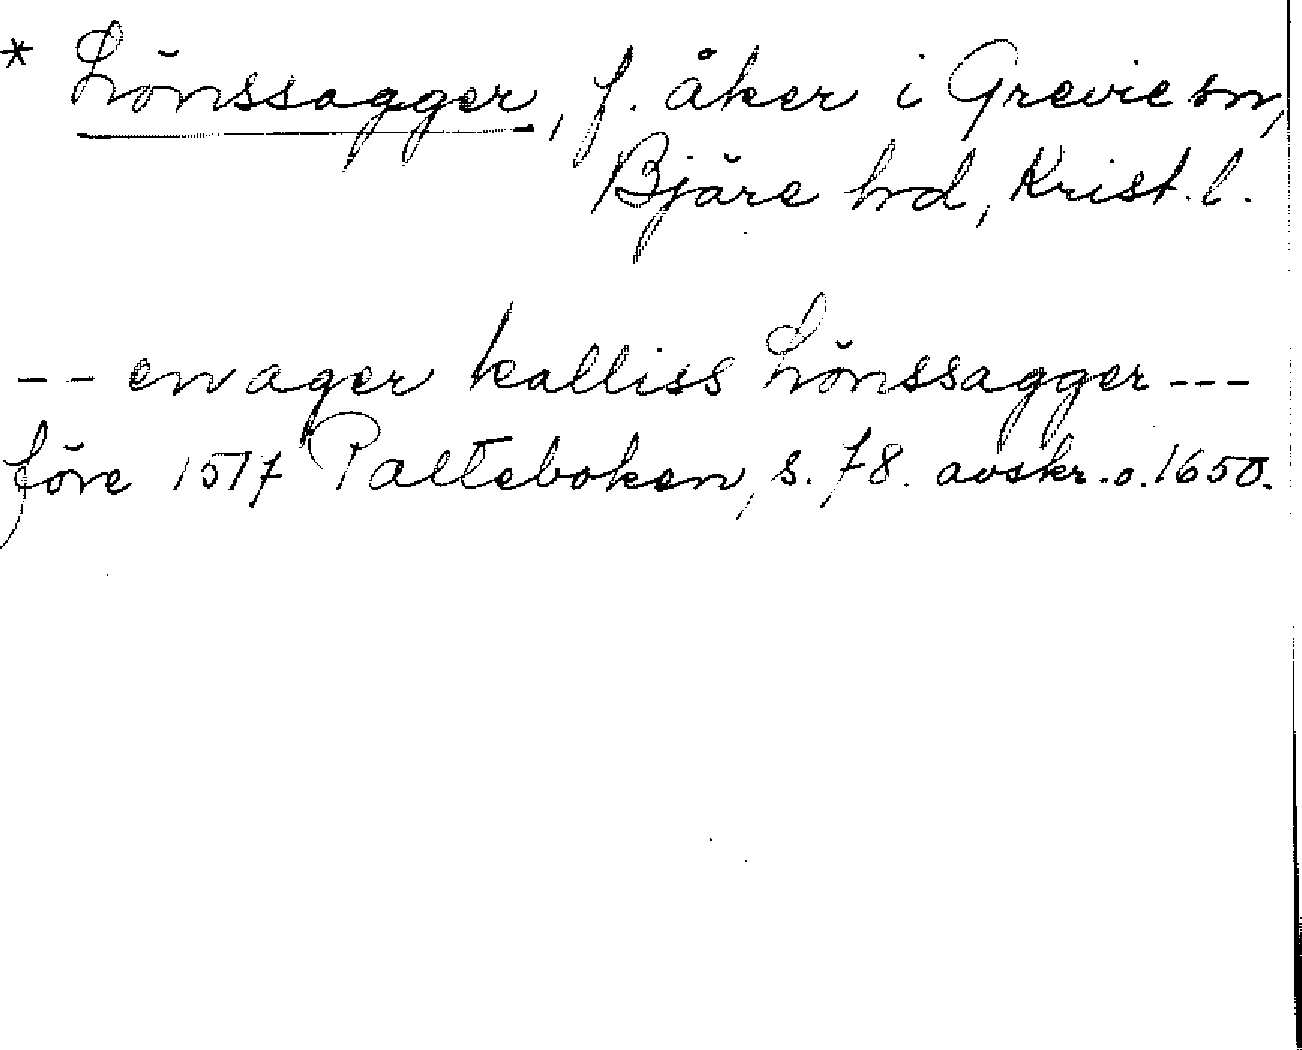 * Lönssagger, f. åker i Grevie sn,
Bjäre hd, Krist. l.
-- en ager kalliss Lönssagger ---
före 1517 Palteboken, s. 78. avskr. o. 1650.